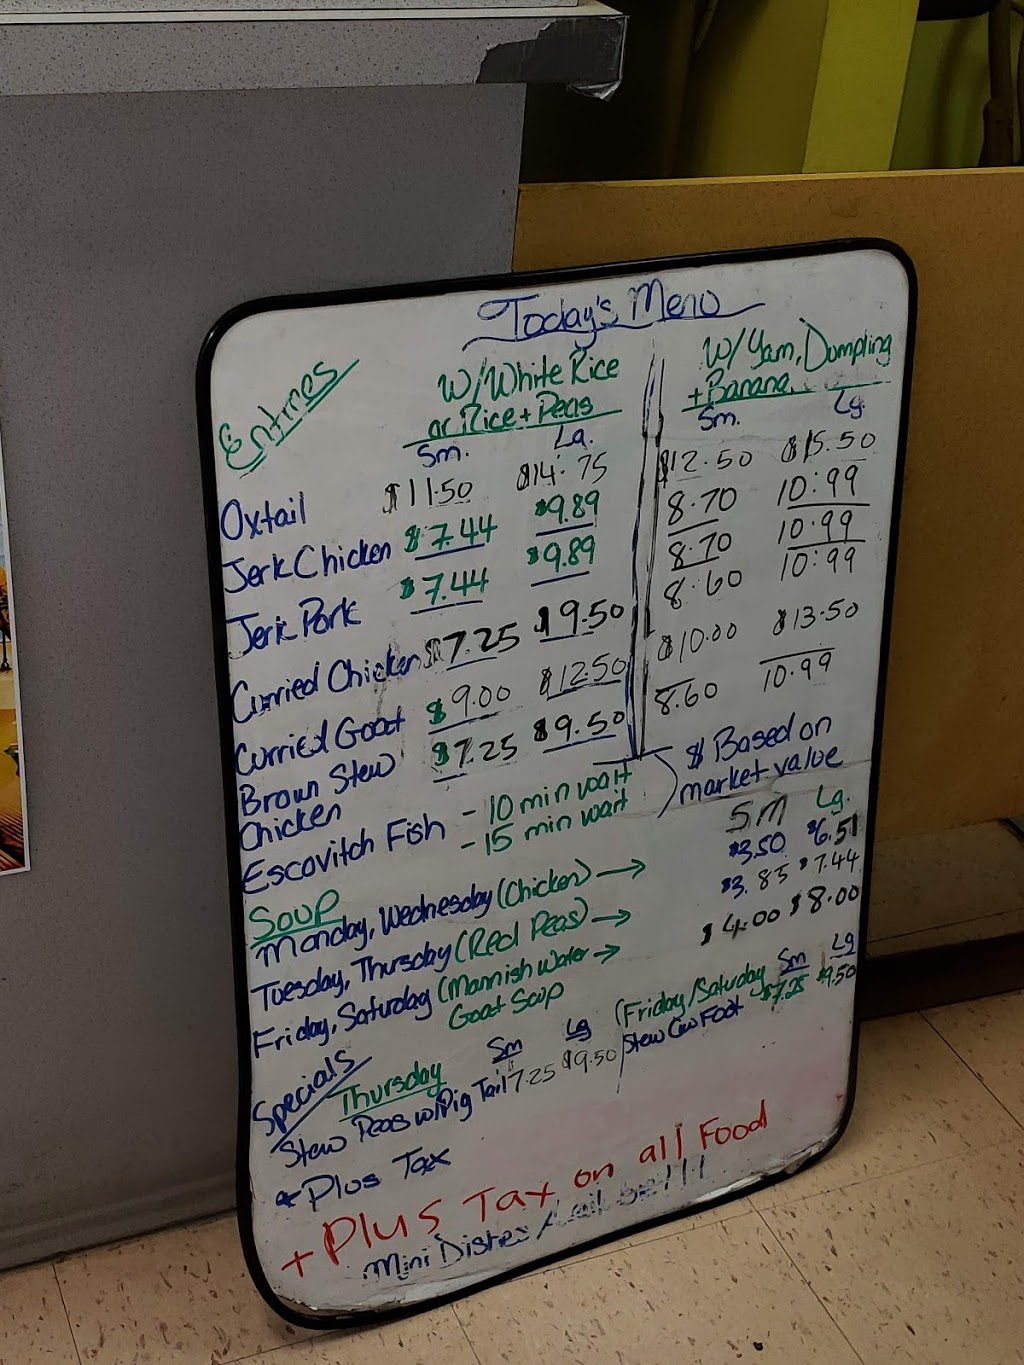 Today's Menu
Entrees
W/White Rice
or Rice + Peas
W/Yam, Dumpling
+ Banana
Sm. Lg. Sm. Lg.
Oxtail $11.50 $14.75 $12.50 $15.50
Jerk Chicken $7.44 $9.89 8.70 10.99
Jerk Pork $7.44 $9.89 8.70 10.99
Curried Chicken $7.25 $9.50 8.60 10.99
Curried Goat $9.00 $12.50 $10.00 $13.50
Brown Stew $7.25 $9.50 8.60 10.99
Chicken
Escovitch Fish - 10 min wait
- 15 min wait
$ Based on
market value
Soup SM Lg.
Monday, Wednesday (Chicken) → $3.50 $6.51
Tuesday, Thursday (Red Peas) → $3.85 $7.44
Friday, Saturday (Mannish Water → $4.00 $8.00
Goat Soup
Specials
Thursday Sm Lg
Stew Peas w/Pig Tail 7.25 $9.50
(Friday/Saturday Sm Lg
Stew Cow Foot $7.25 $9.50
* Plus Tax
+ Plus Tax on all Food
Mini Dishes